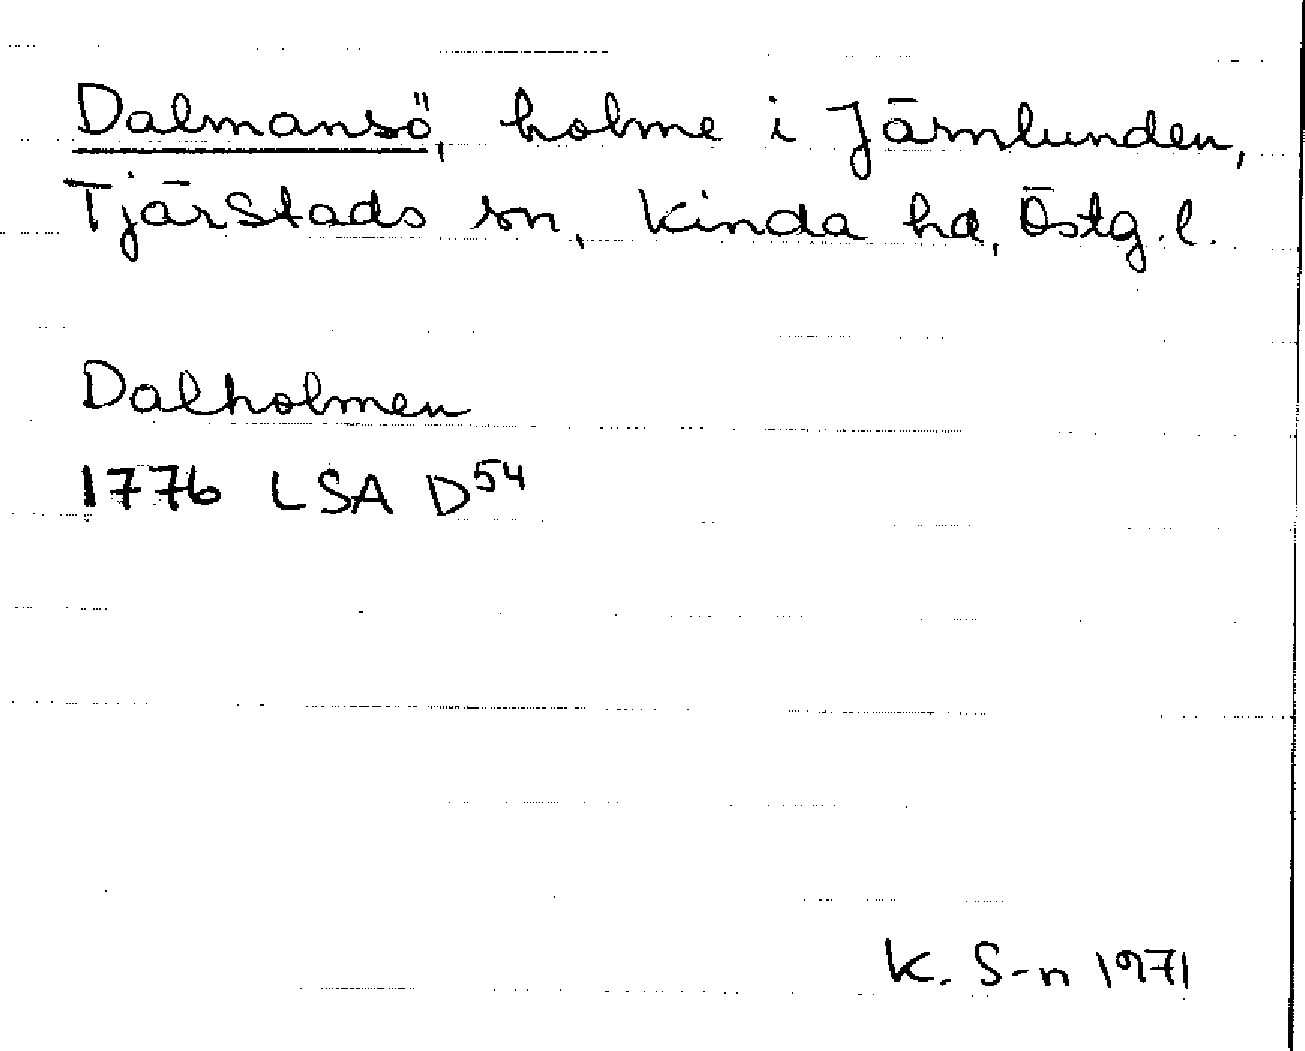 Dalmansö, holme i Järnlunden,
Tjärstads sn, Kinda hd, Östg.l.
Dalholmen
1776 LSA D54
K. S-n 1971